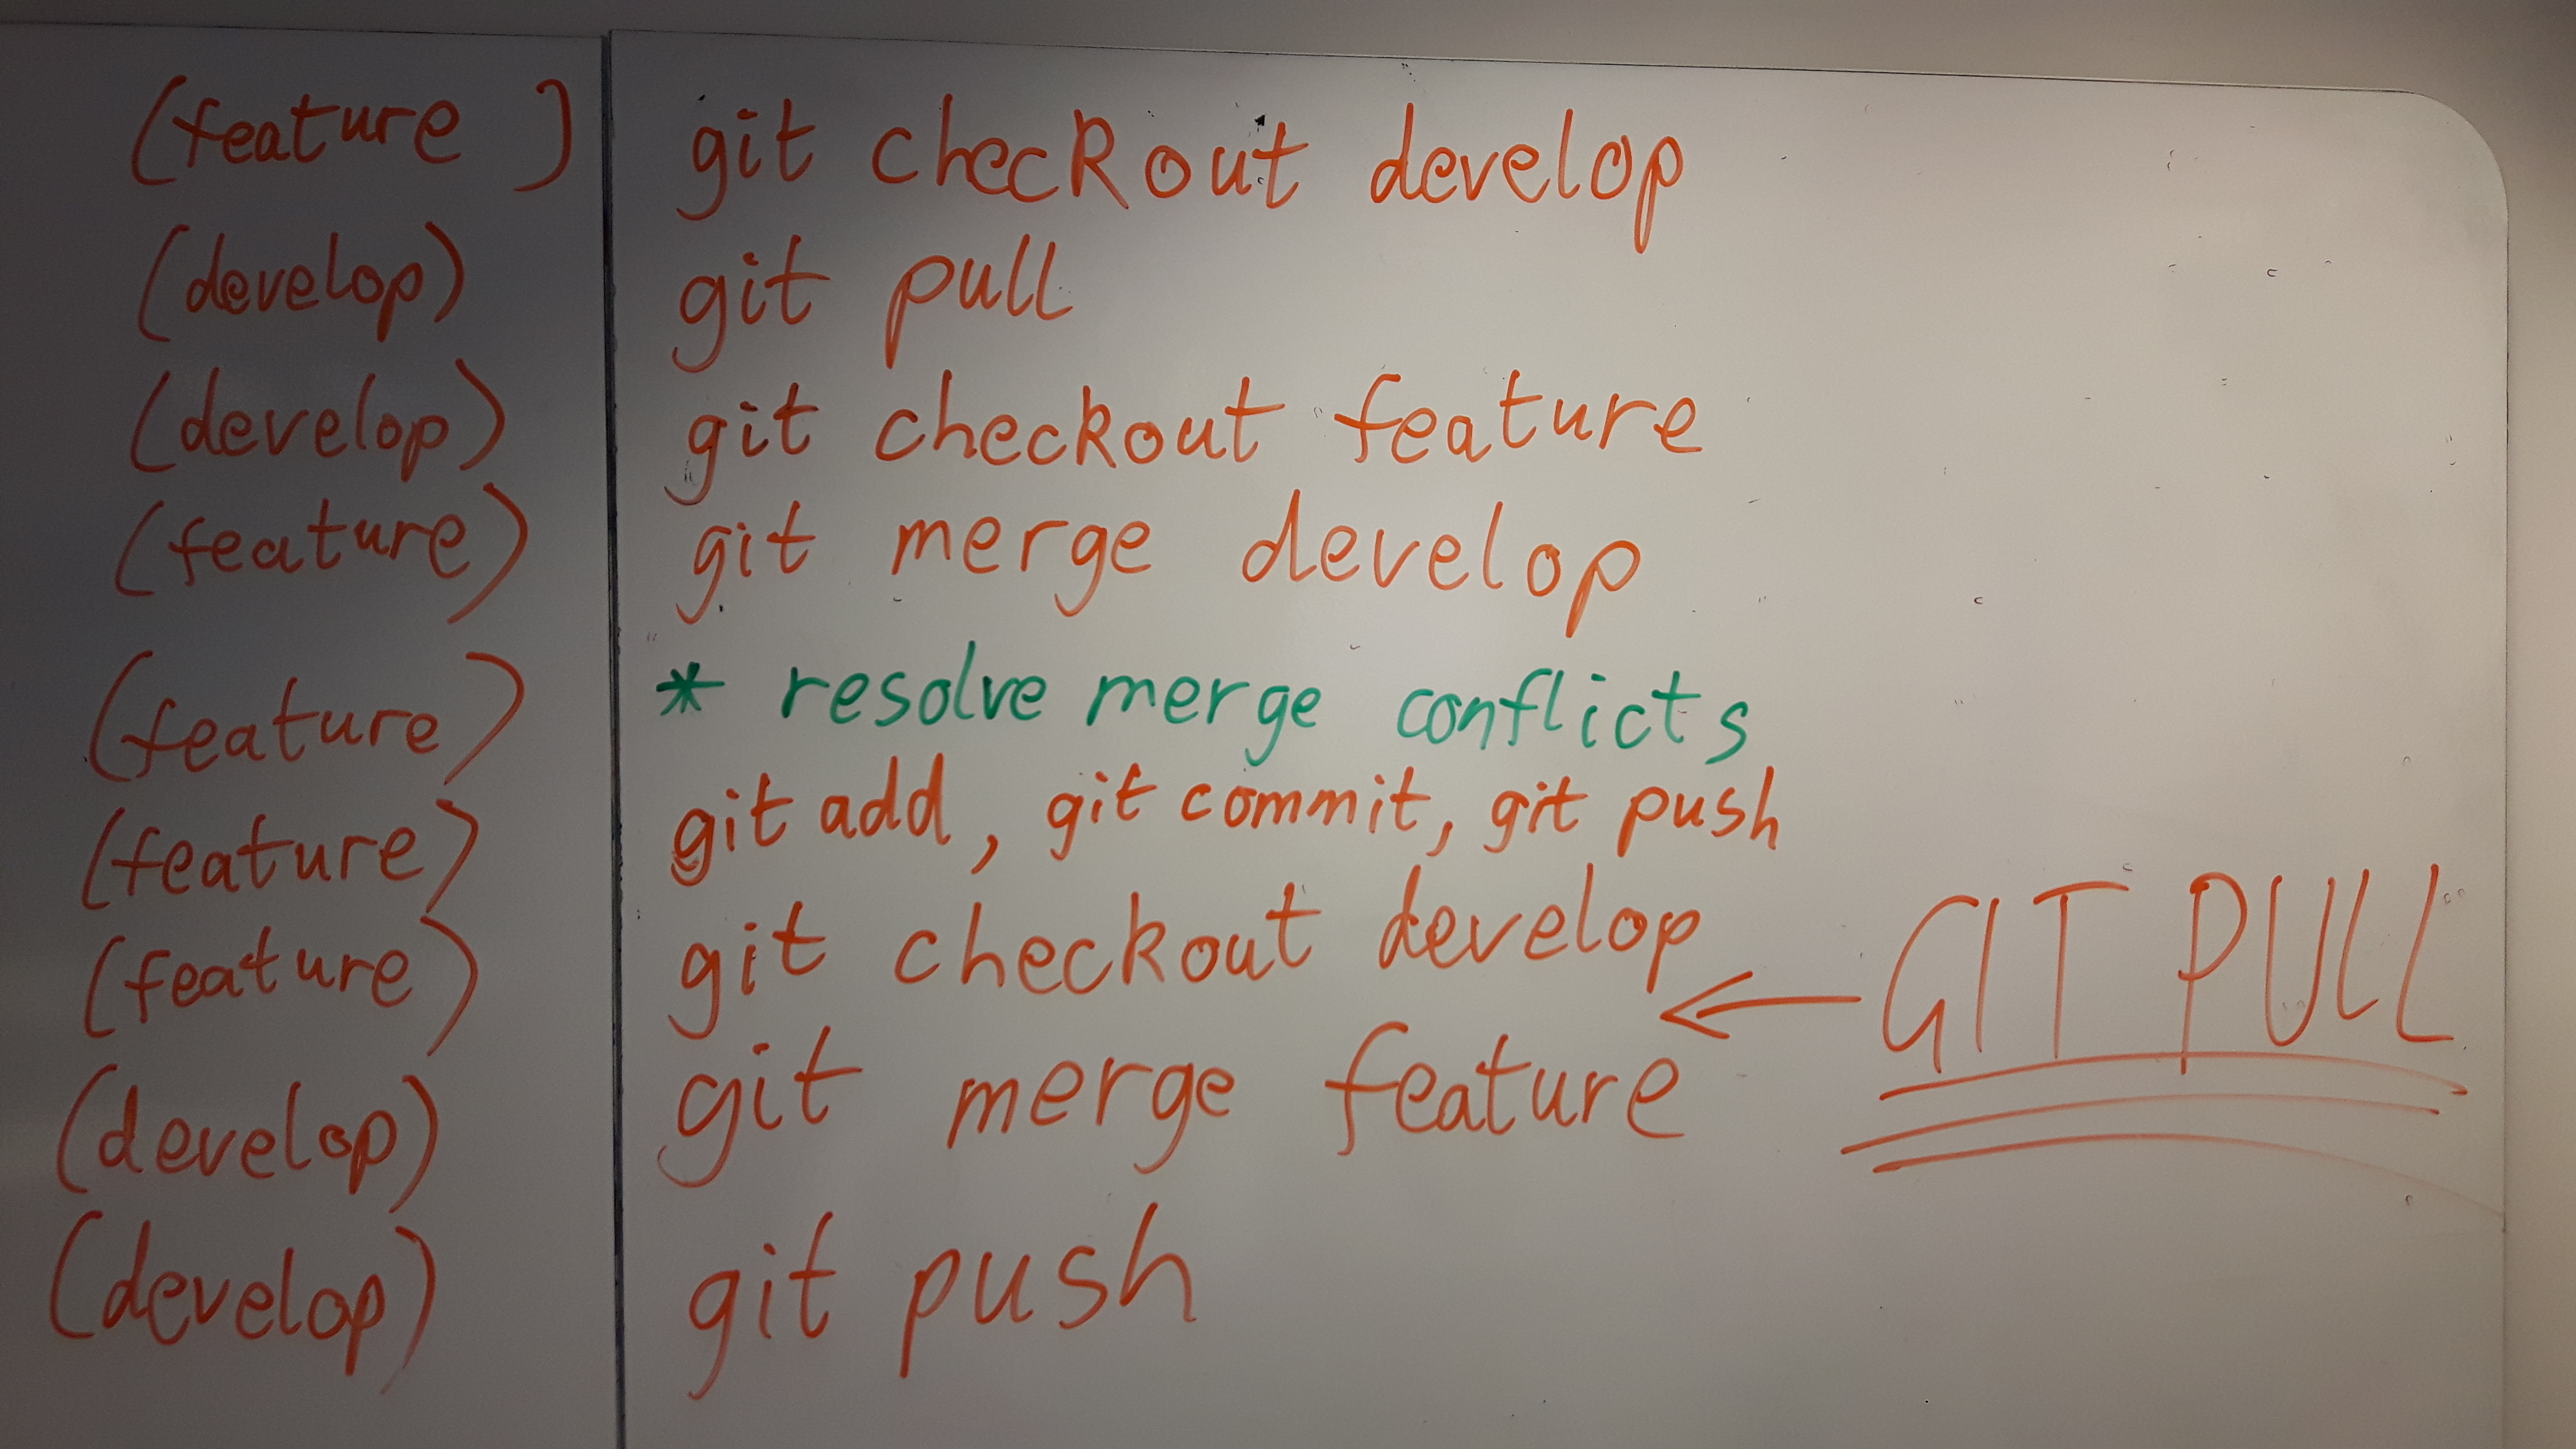 (feature) git checkout develop
(develop) git pull
(develop) git checkout feature
(feature) git merge develop
(feature) * resolve merge conflicts
(feature) git add, git commit, git push
(feature) git checkout develop
← GIT PULL
(develop) git merge feature
(develop) git push